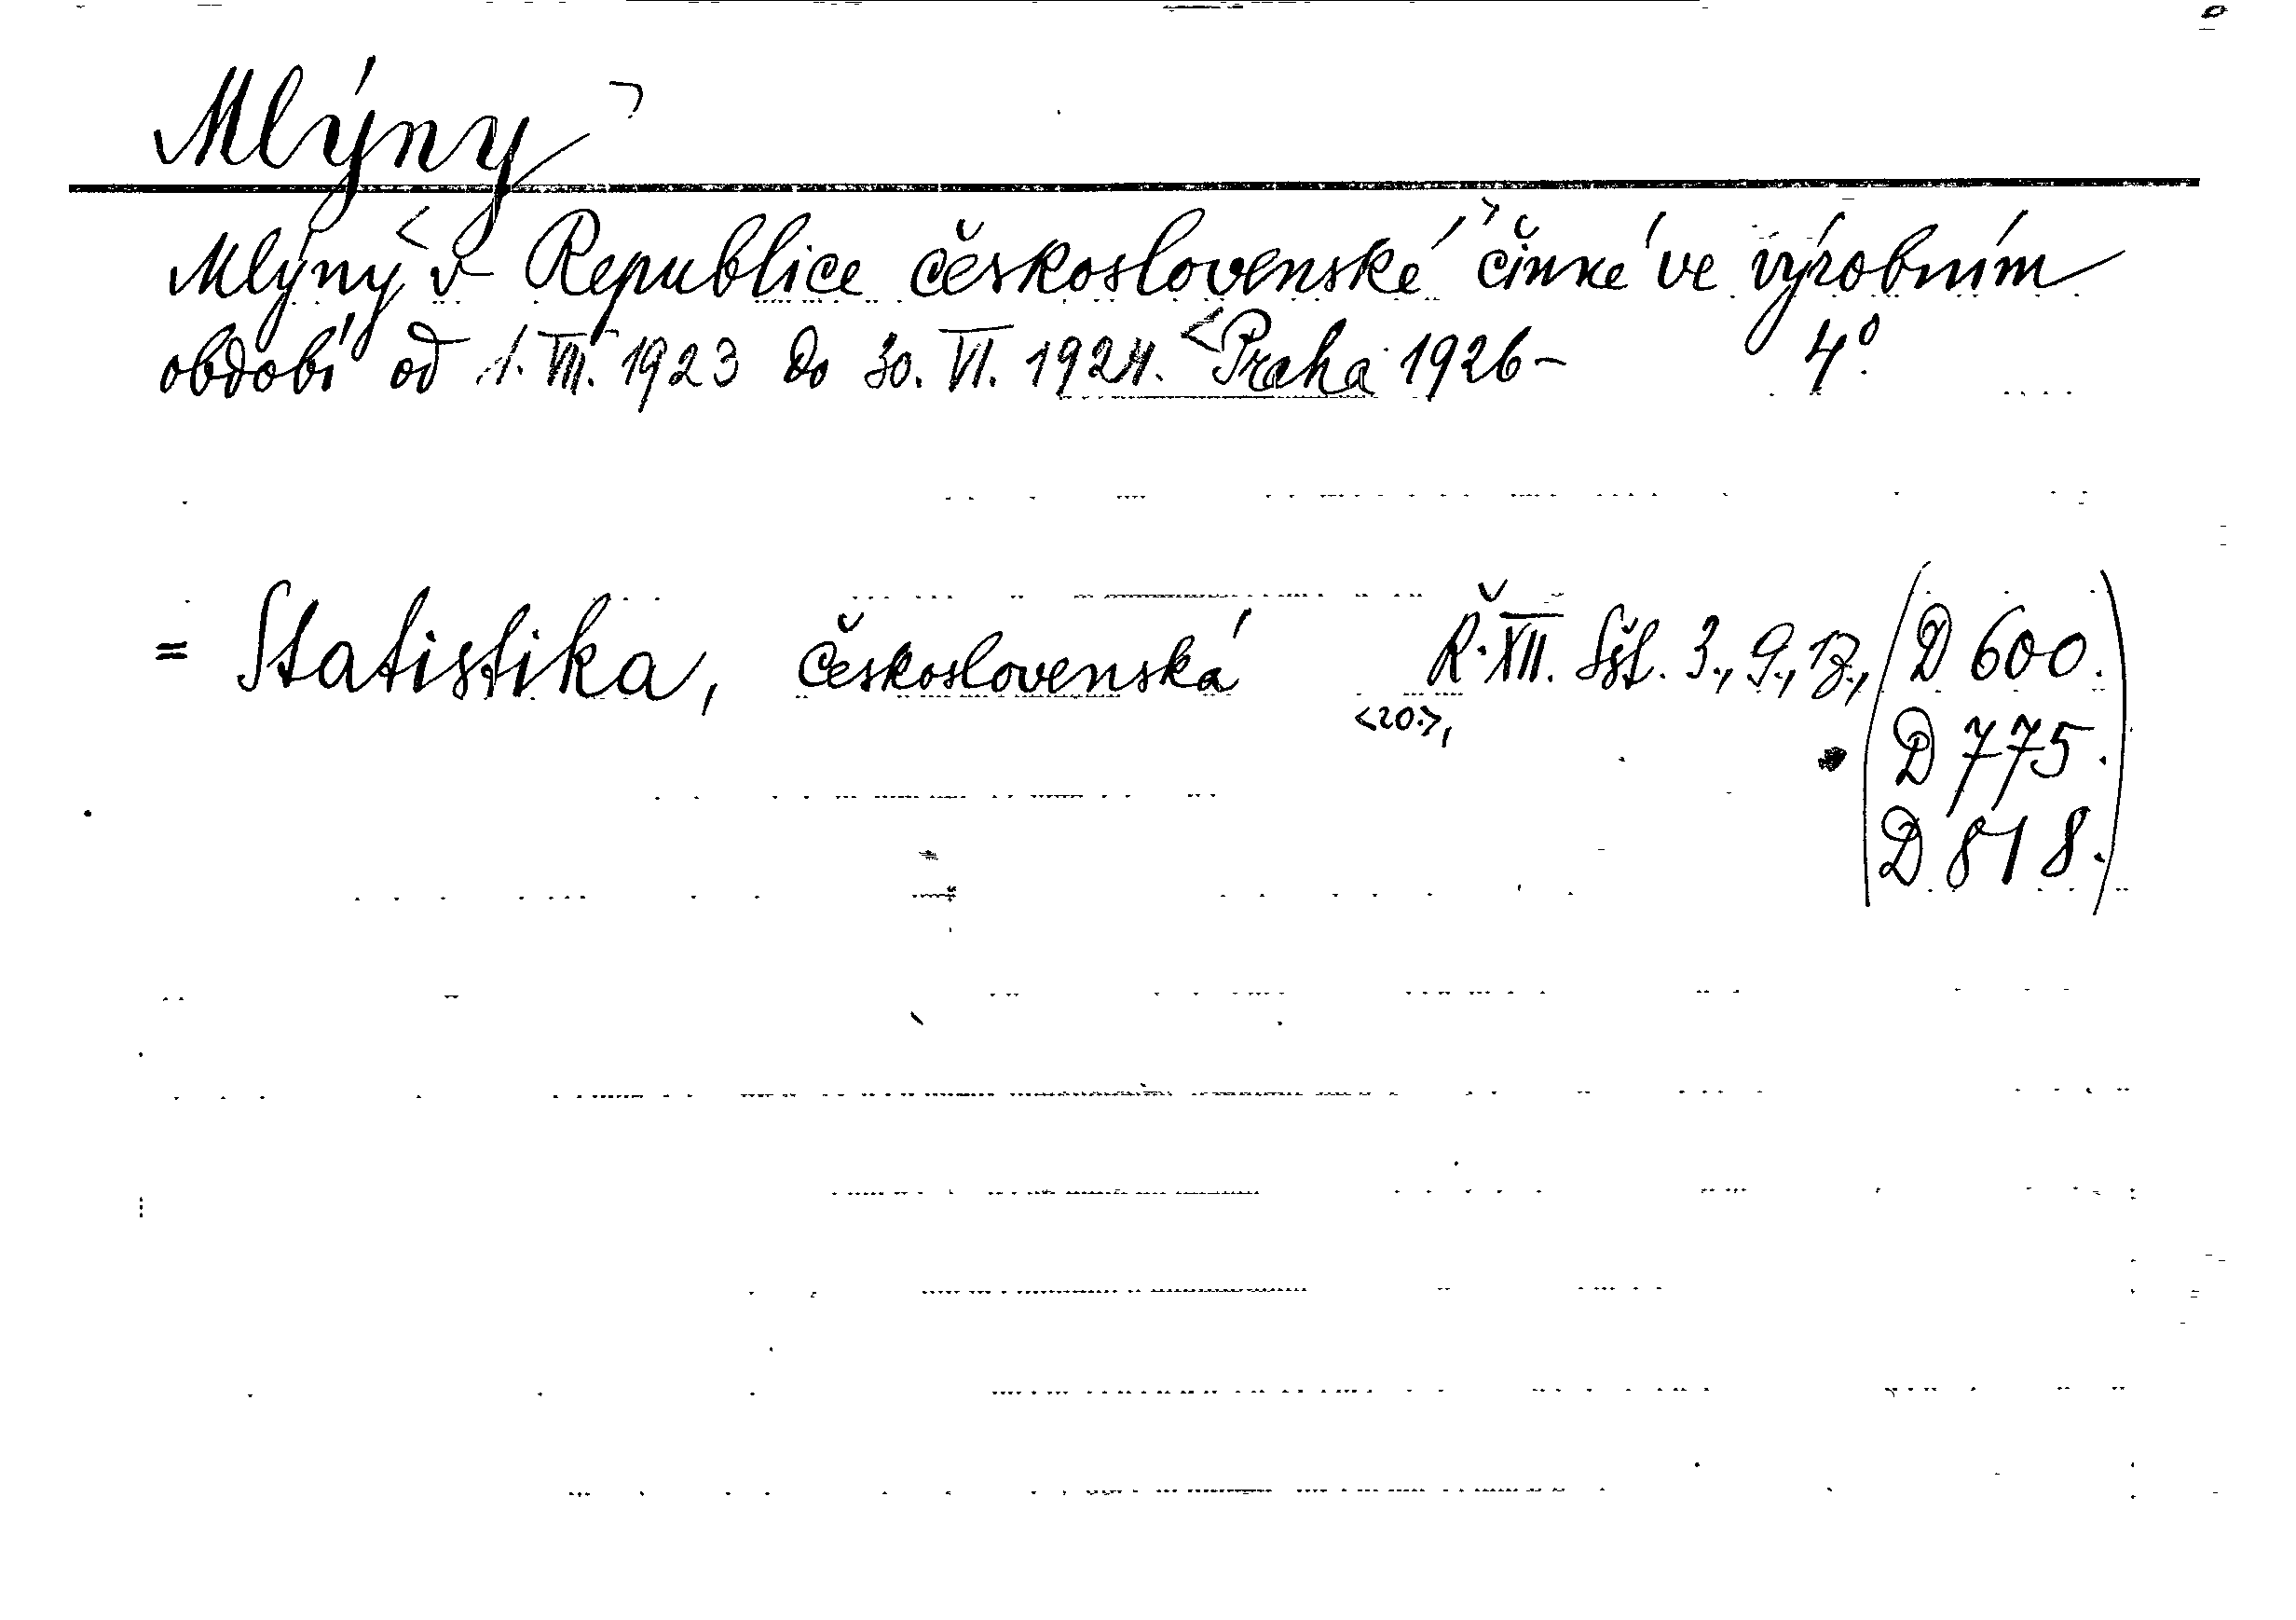 Mlýny
Mlýny < v Republice československé > činné ve výrobním
období od 1. VII. 1923 do 30. VI. 1924. < Praha 1926- 4°.
= Statistika, československá Ř. XII. Sšt. 3., 9., 13., (D 600.
<20.>,
D 775.
D 818.)